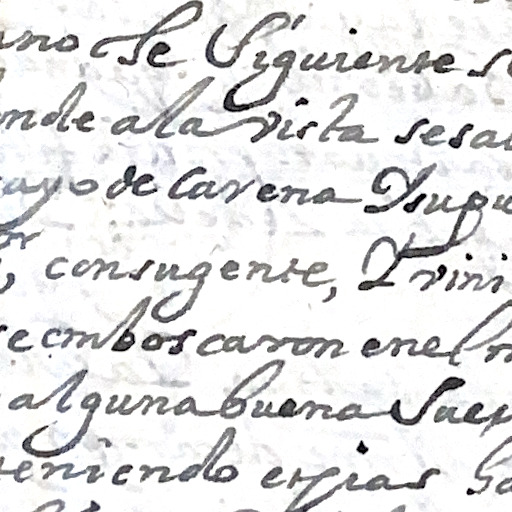 ano de Siguiente se
onde ala vista sesa
ayo de Carena Dsupu
or
, consugente, Trini
se emboscaron enel m
alguna buena Suer
teniendo espias